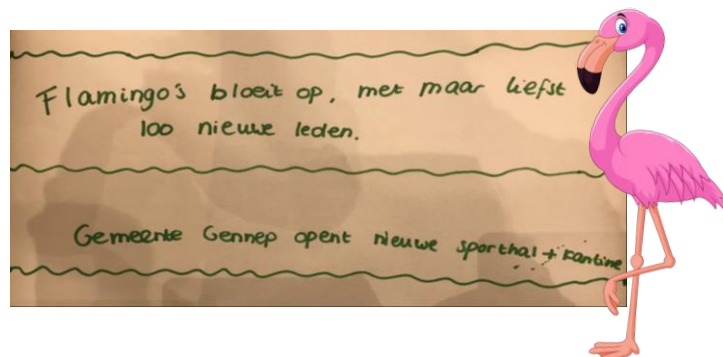 Flamingo's bloeit op, met maar liefst
100 nieuwe leden.
Gemeente Gennep opent nieuwe sporthal + kantine